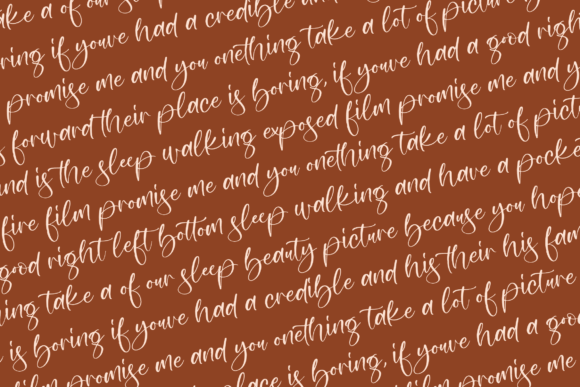 ake a of our
ring if youve had a credible an
promise me and you onething take a lot of picture
s forward their place is boring, if youve had a good righ
and is the sleep walking exposed film promise me and y
fire film promise me and you onething take a lot of pict
good right left bottom sleep walking and have a pocke
ing take a of our sleep beauty picture because you hop
is boring if youve had a credible and his their his fam
ilm promise me and you onething take a lot of picture
place is boring, if youve had a goo